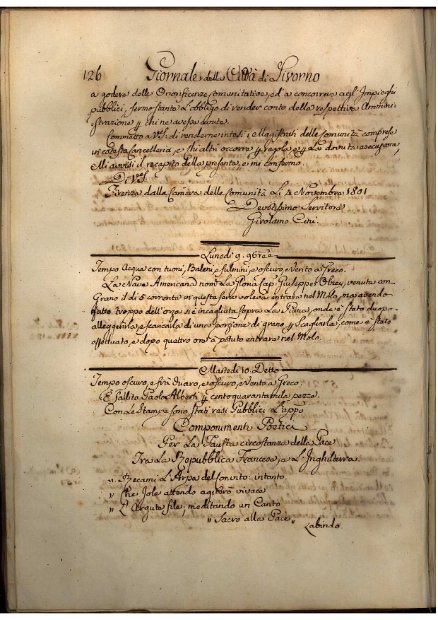 126 Giornale della Città di Livorno
a godere delle Beneficenze comunitative, ed a concorrere agl'Impieghi
pubblici, fermo stante l'obbligo di render conto delle respettive Ammini-
strazioni per chi ne avesse avute.
Commetto a di renderne intesi i Magistrati delle comunità comprese
in codesta Cancelleria, e chi altri occorre per regola e per la dovuta
Mi avvisi il recapito della presente, e mi confermo
Di
Firenze dalla Camera delle Comunità Li 4 Novembre 1801
Devotissimo Servitore
Girolamo
Lunedì 9. 9bre
Tempo Acqua con tuoni, Baleni, e fulmini, e oscuro, Vento a Greco.
La Nave Americana nom. La Cap. Giuseppe venuta con
Grano il dì 8 corrente in questa sera voleva entrare nel Molo, ma avendo
fatto troppo dell'orza si è incagliata sopra La ed è stato duopo
alleggerirla, e scaricarla di una porzione di grano per Scagliarla, come è stato
effettuato, e dopo quattro ore à potuto entrare nel Molo.
Martedì 10. Detto
Tempo oscuro, e poi chiaro, e oscuro, Vento a Greco
È fallito Paolo Alberti per centoquarantamila pezze.
Con Le Stampe sono stati resi Pubblici L'appo
Componimenti Poetici
Per La Fausta circostanza della Pace
Tra La Repubblica Francese, e L'Inghilterra
" Recami L'Arpa del convito: intanto
" Che Jole attende a vivace
" L'Argute file; meditando un Canto
" Sacro alla Pace.
Labindo.